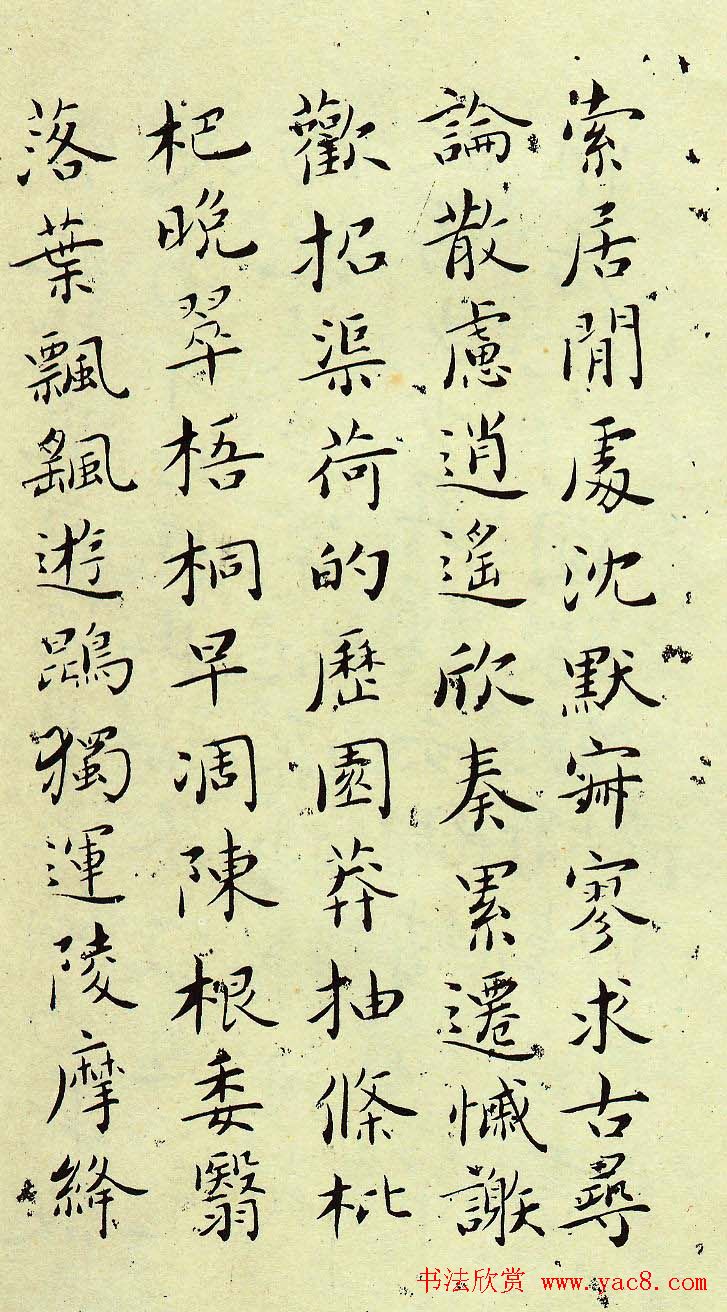 索居閒處沈默寂寥求古尋
論散慮逍遙欣奏累遷慽謝
歡招渠荷的歷園莽抽條枇
杷晚翠梧桐早凋陳根委翳
落葉飄颻遊鵾獨運陵摩絳
书法欣赏 www.yac8.com